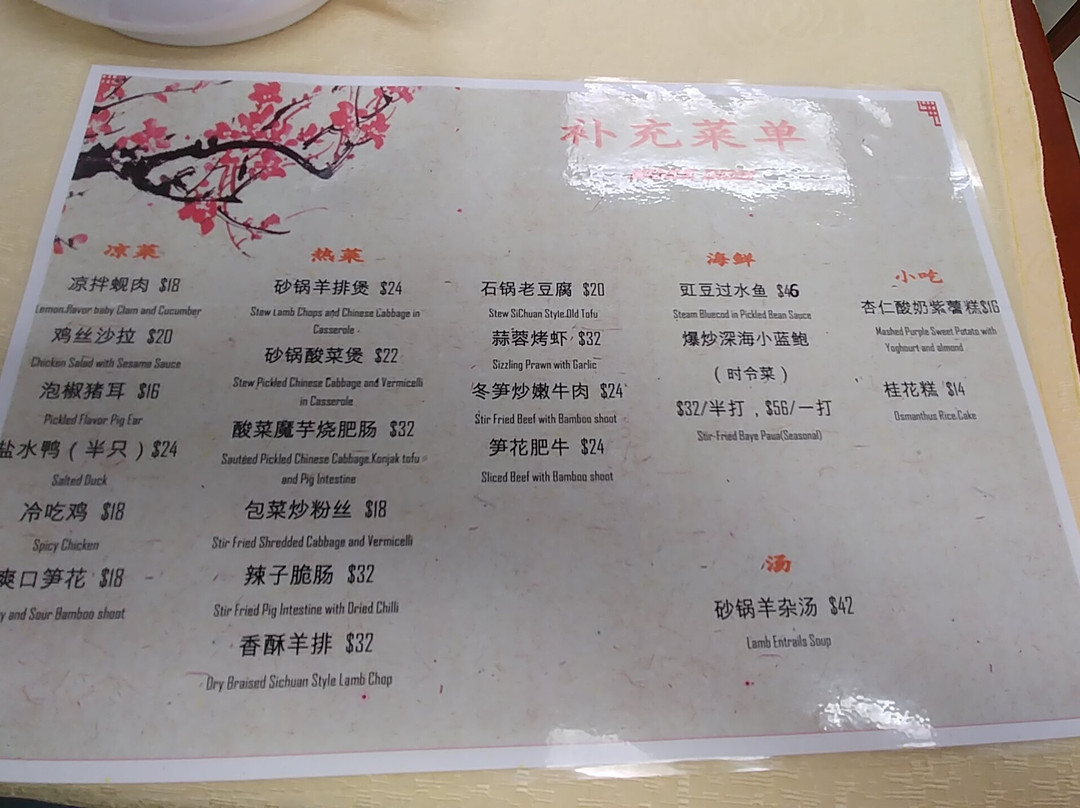 补充菜单
凉菜
凉拌蚬肉 $18
Lemon.flavor baby Clam and Cucumber
鸡丝沙拉 $20
Chicken Salad with Sesame Sauce
泡椒猪耳 $16
Pickled Flavor Pig Ear
盐水鸭（半只）$24
Salted Duck
冷吃鸡 $18
Spicy Chicken
爽口笋花 $18
and Sour Bamboo shoot
热菜
砂锅羊排煲 $24
Stew Lamb Chops and Chinese Cabbage in
Casserole
砂锅酸菜煲 $22
Stew Pickled Chinese Cabbage and Vermicelli
in Casserole
酸菜魔芋烧肥肠 $32
Sautéed Pickled Chinese Cabbage.Konjak tofu
and Pig Intestine
包菜炒粉丝 $18
Stir Fried Shredded Cabbage and Vermicelli
辣子脆肠 $32
Stir Fried Pig Intestine with Dried Chilli
香酥羊排 $32
Dry Braised Sichuan Style Lamb Chop
石锅老豆腐 $20
Stew SiChuan Style.Old Tofu
蒜蓉烤虾 $32
Sizzling Prawn with Garlic
冬笋炒嫩牛肉 $24
Stir Fried Beef with Bamboo shoot
笋花肥牛 $24
Sliced Beef with Bamboo shoot
海鲜
豇豆过水鱼 $46
Steam Bluecod in Pickled Bean Sauce
爆炒深海小蓝鲍
（时令菜）
$32/半打，$56/一打
Stir-Fried Baye Paua(Seasonal)
汤
砂锅羊杂汤 $42
Lamb Entrails Soup
小吃
杏仁酸奶紫薯糕$16
Mashed Purple Sweet Potato with
Yoghourt and almond
桂花糕 $14
Osmanthus Rice Cake